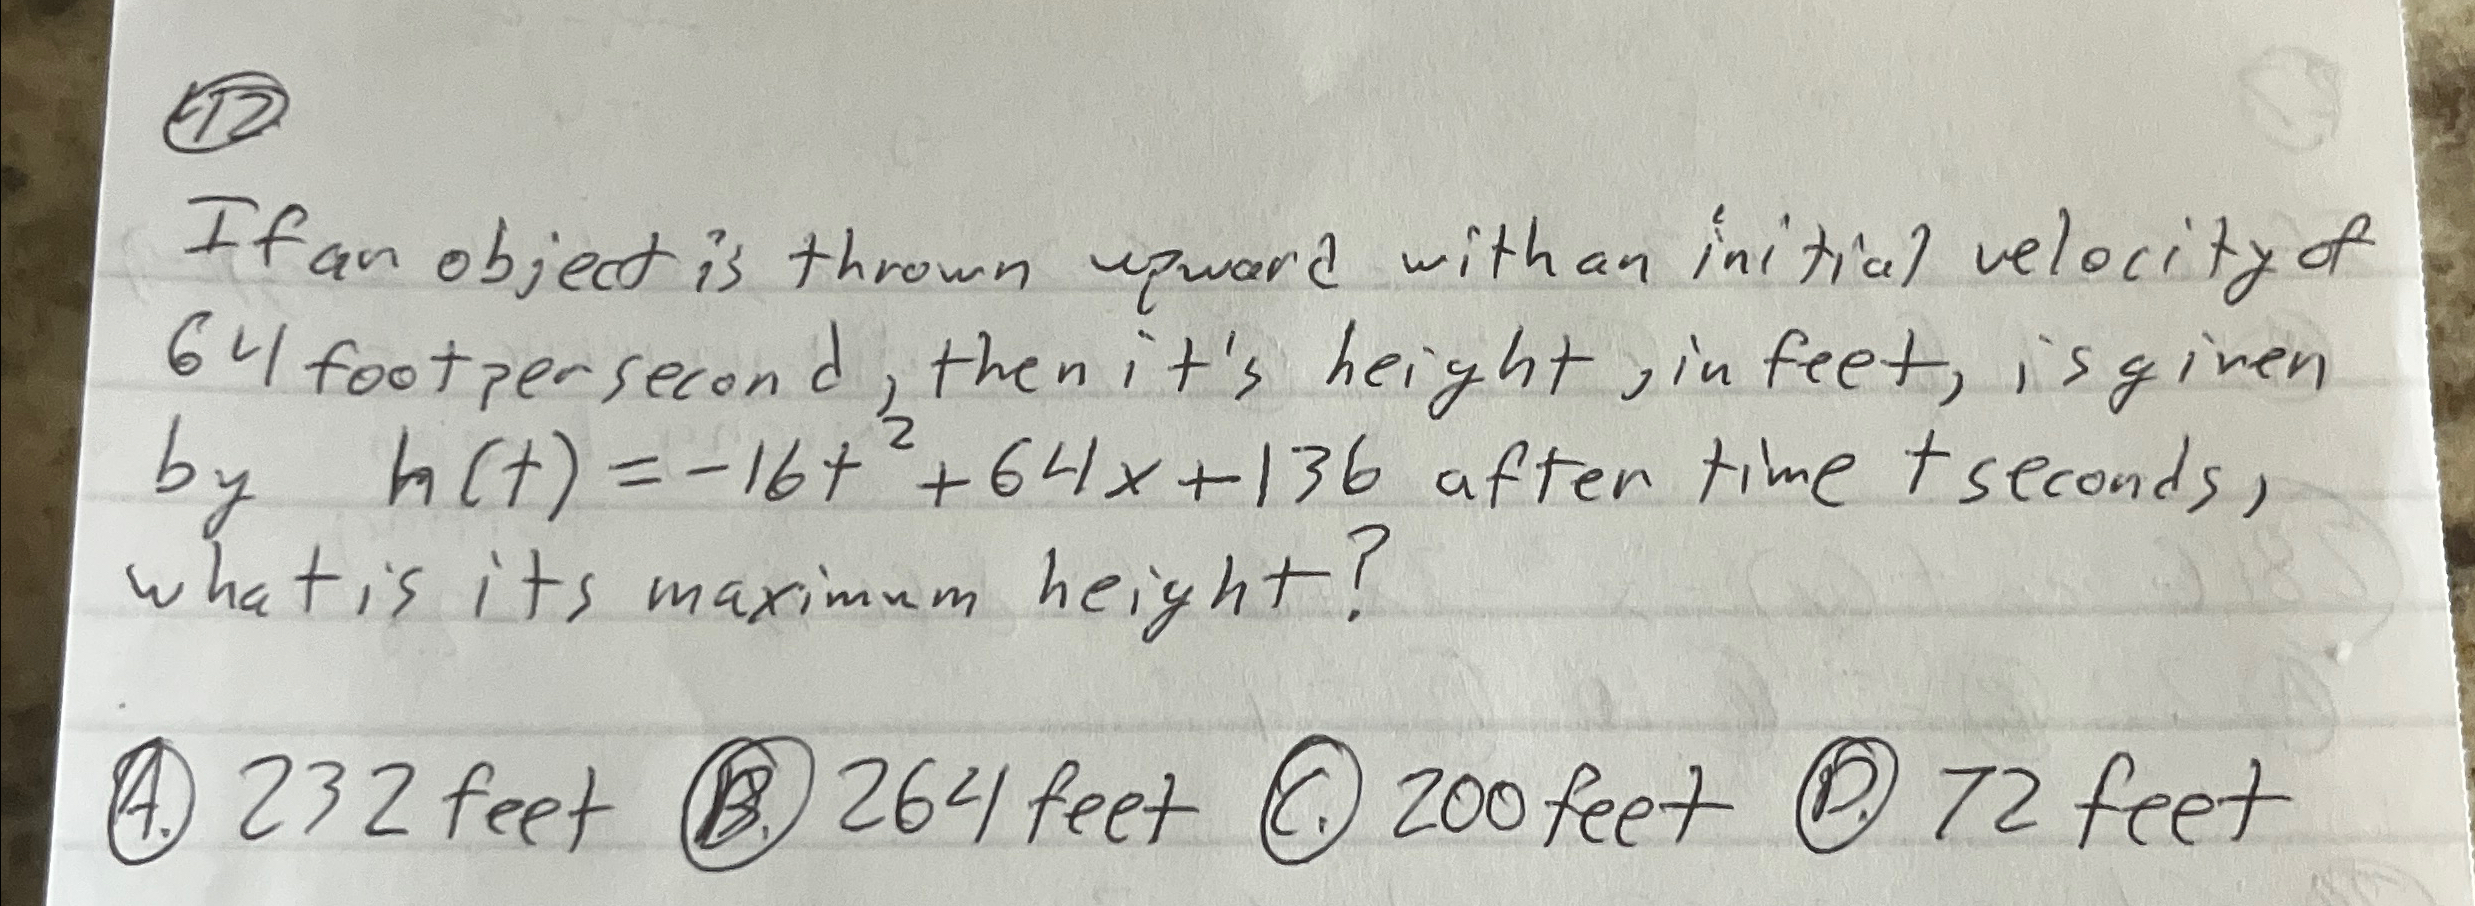 12
If an object is thrown upward with an initial velocity of
64 foot per second, then it's height, in feet, is given
by h(t) = -16t² + 64x + 136 after time t seconds,
what is its maximum height?
A. 232 feet B. 264 feet C. 200 feet D. 72 feet